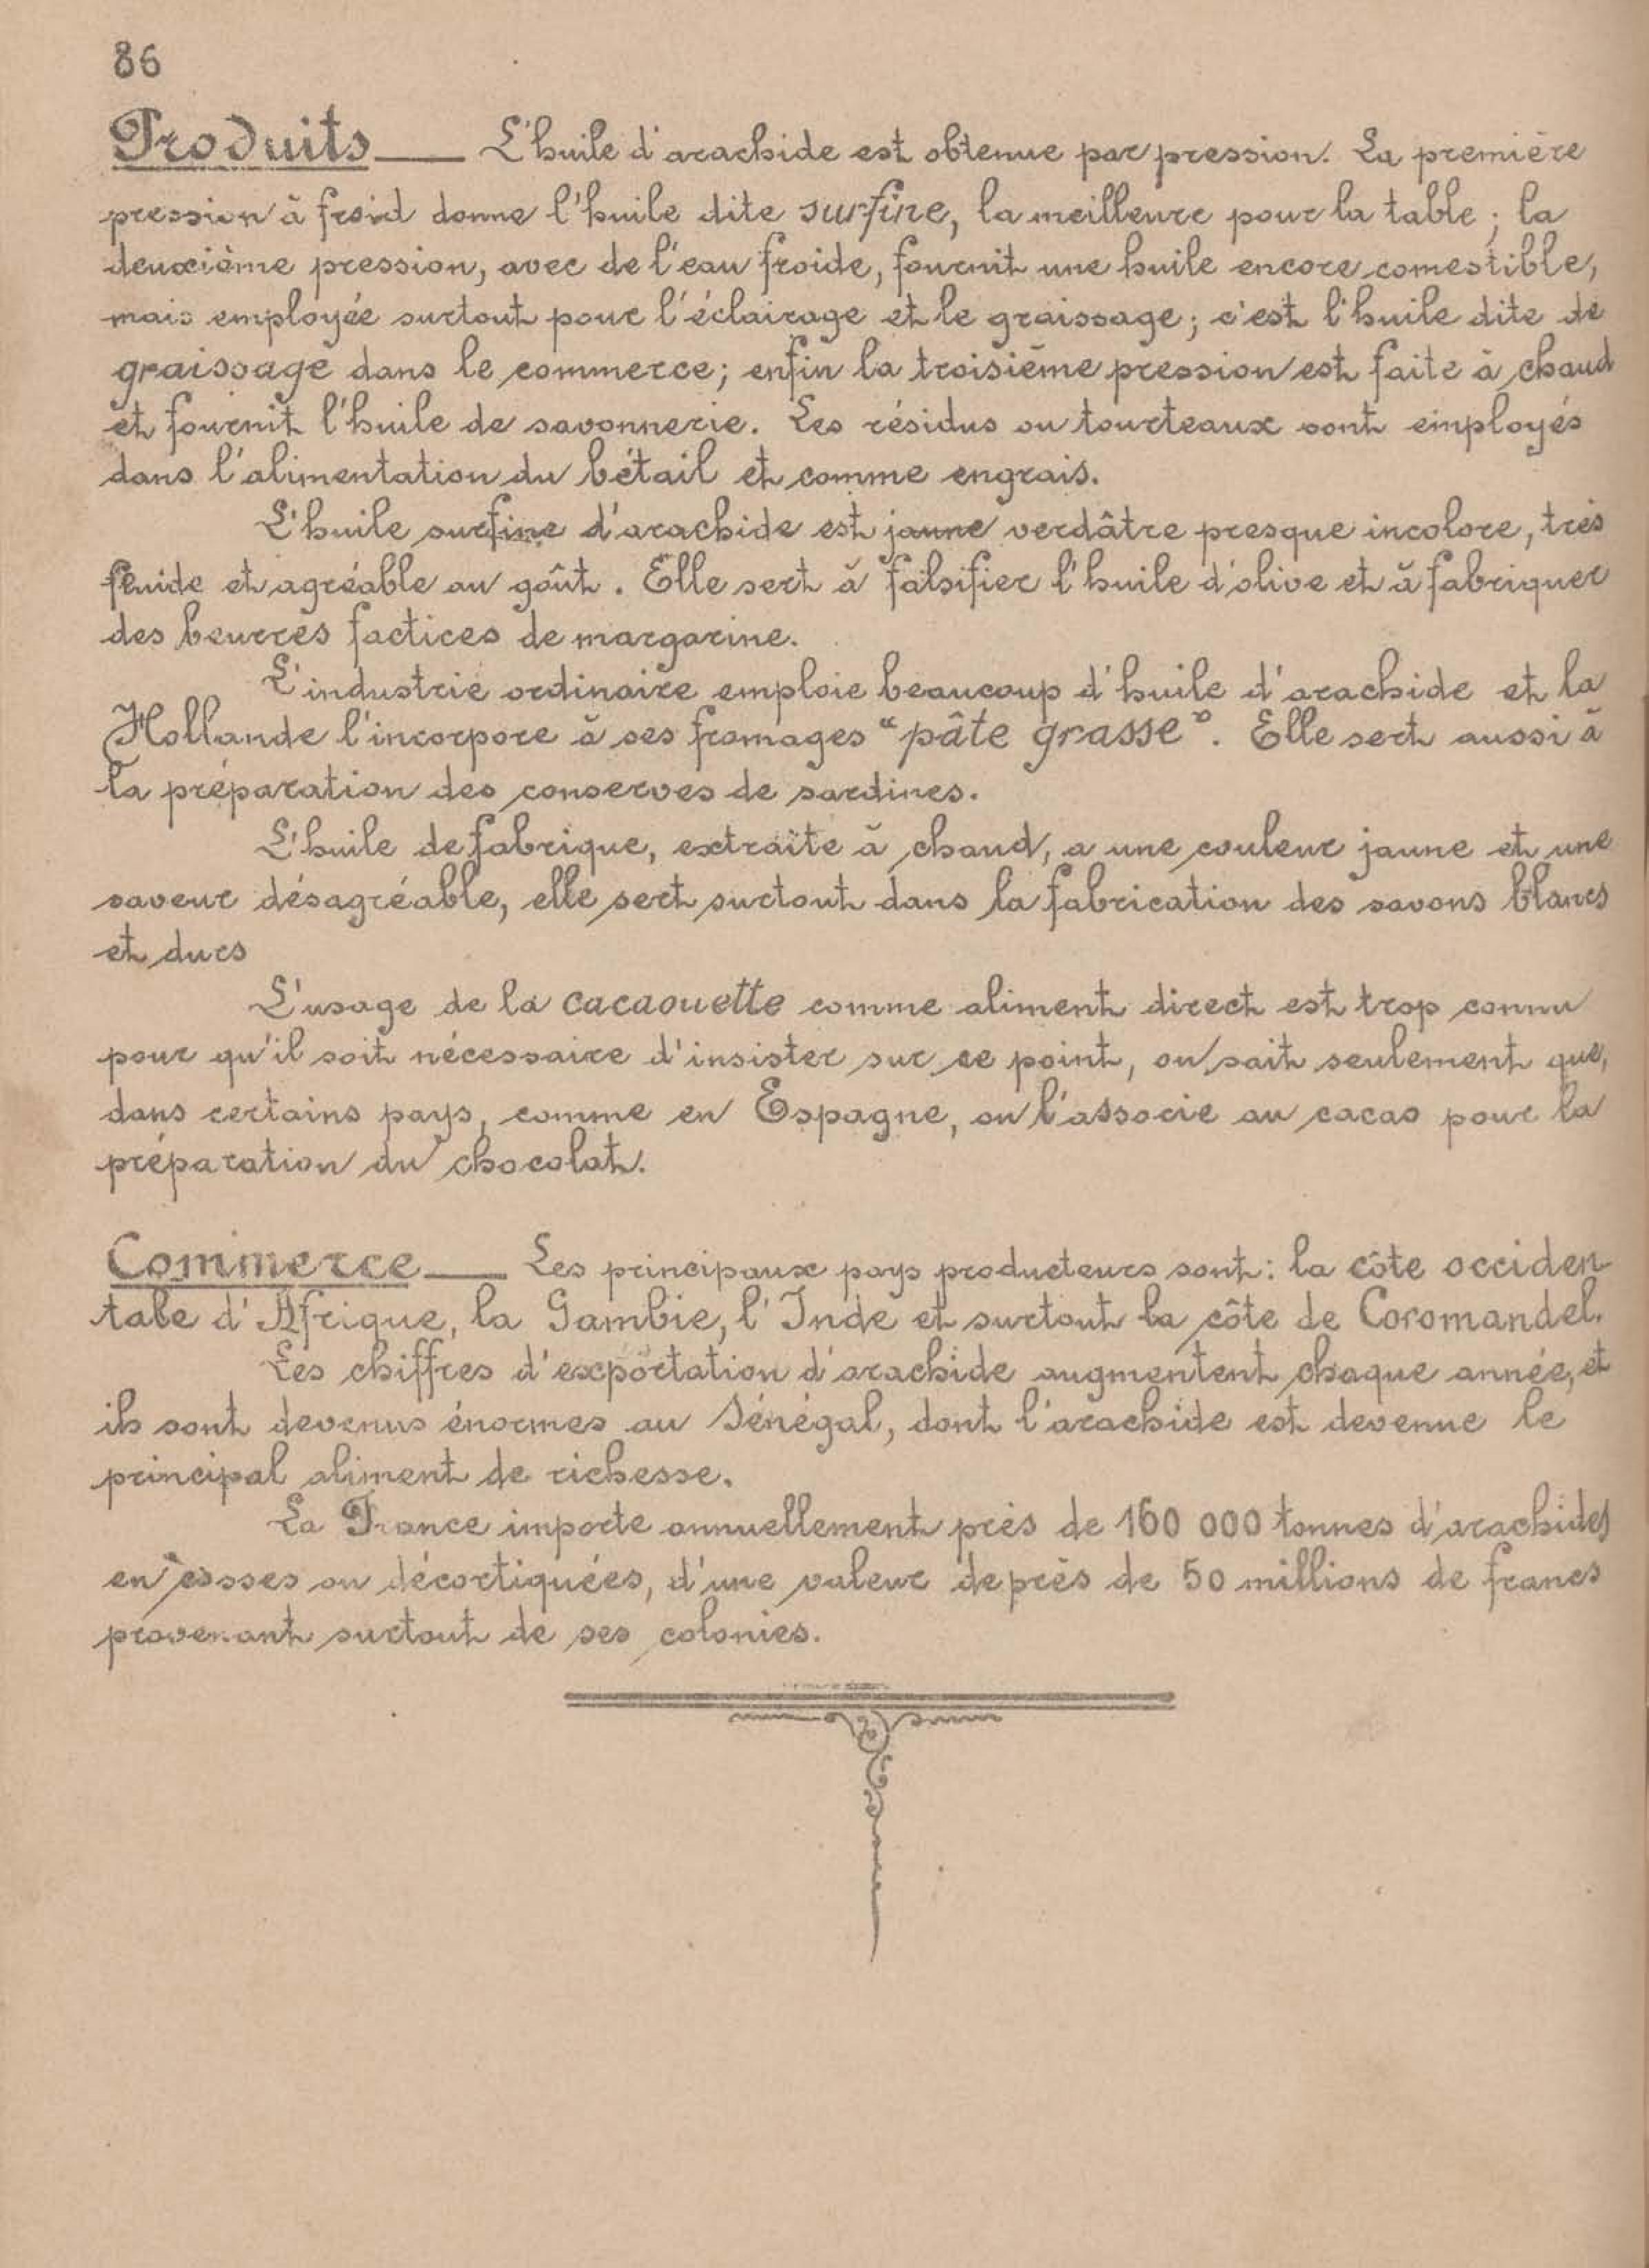 86
Produits — L'huile d'arachide est obtenue par pression. La première
pression à froid donne l'huile dite surfine, la meilleure pour la table ; la
deuxième pression, avec de l'eau froide, fournit une huile encore comestible,
mais employée surtout pour l'éclairage et le graissage ; c'est l'huile dite de
graissage dans le commerce ; enfin la troisième pression est faite à chaud
et fournit l'huile de savonnerie. Les résidus ou tourteaux sont employés
dans l'alimentation du bétail et comme engrais.
L'huile surfine d'arachide est jaune verdâtre presque incolore, très
fluide et agréable au goût. Elle sert à falsifier l'huile d'olive et à fabriquer
des beurres factices de margarine.
L'industrie ordinaire emploie beaucoup d'huile d'arachide et la
Hollande l'incorpore à ses fromages "pâte grasse". Elle sert aussi à
la préparation des conserves de sardines.
L'huile de fabrique, extraite à chaud, a une couleur jaune et une
saveur désagréable, elle sert surtout dans la fabrication des savons blancs
et durs
L'usage de la cacaouette comme aliment direct est trop connu
pour qu'il soit nécessaire d'insister sur ce point, on sait seulement que,
dans certains pays, comme en Espagne, on l'associe au cacao pour la
préparation du chocolat.
Commerce — Les principaux pays producteurs sont : la côte occiden-
tale d'Afrique, la Gambie, l'Inde et surtout la côte de Coromandel.
Les chiffres d'exportation d'arachide augmentent chaque année, et
ils sont devenus énormes au Sénégal, dont l'arachide est devenue le
principal aliment de richesse.
La France importe annuellement près de 160 000 tonnes d'arachides
en cosses ou décortiquées, d'une valeur de près de 50 millions de francs
provenant surtout de ses colonies.